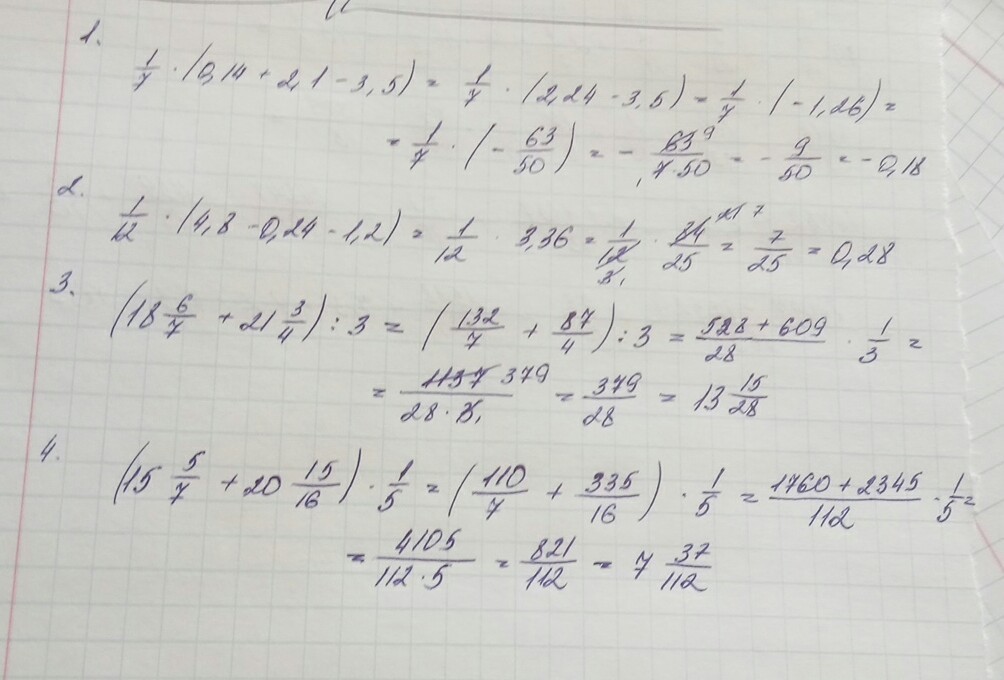 1.
1/7 · (0,14 + 2,1 - 3,5) = 1/7 · (2,24 - 3,5) = 1/7 · (-1,26) =
= 1/7 · (- 63/50) = - 63 9/7·50 = - 9/50 = -0,18
2.
1/12 · (4,8 - 0,24 - 1,2) = 1/12 · 3,36 = 1/12 · 84 21 7/25 = 7/25 = 0,28
3.
(18 6/7 + 21 3/4) : 3 = (132/7 + 87/4) : 3 = 528 + 609/28 · 1/3 =
= 1137 379/28 · 3 1 = 379/28 = 13 15/28
4.
(15 5/7 + 20 15/16) · 1/5 = (110/7 + 335/16) · 1/5 = 1760 + 2345/112 · 1/5 =
= 4105/112 · 5 = 821/112 = 7 37/112